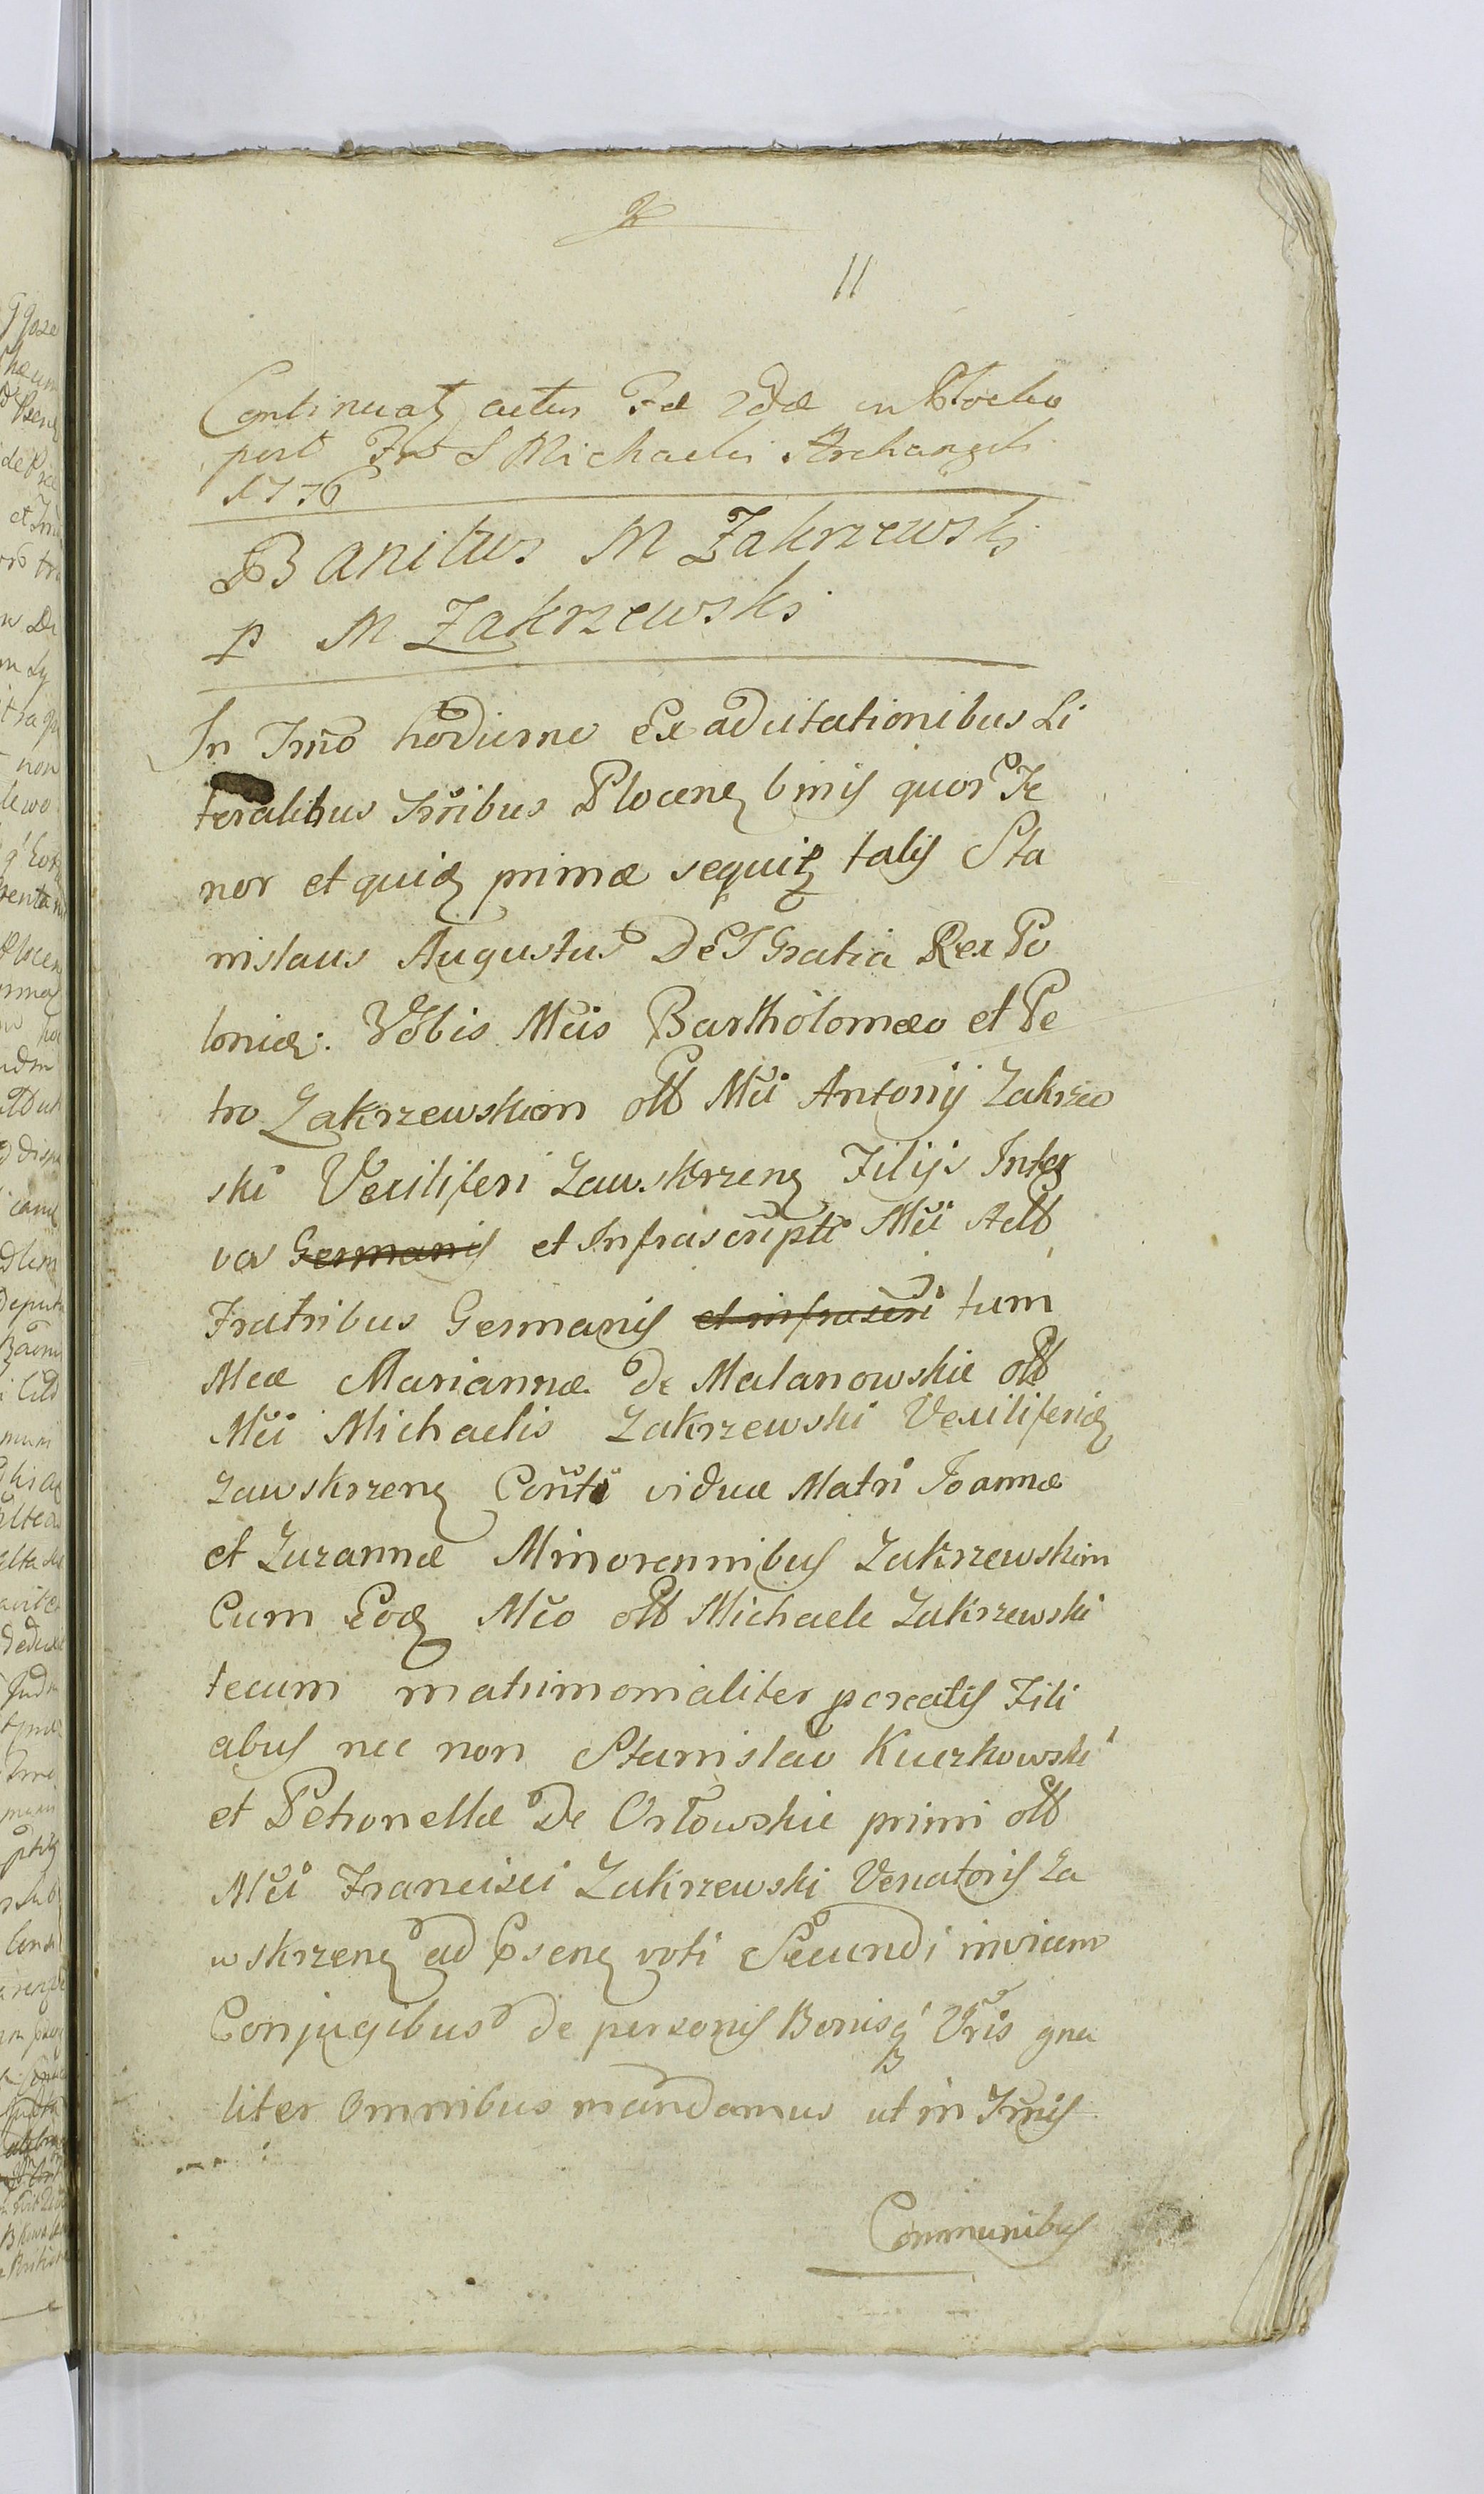 11
Continuatʒ actus Fæ 2dæ in Plocko
post Ftũ S Michaelis Archangeli
1776
Banitus M Zakrzewski
p M Zakrzewski
In Trño hodierno Ex adcitationibus Li
teralibus Trñibus Plocenʒ binis quorʼ Te
nor et quidʒ primæ sequitʒ talis Sta
nislaus Augustus DEI Gratia Rex Po
loniæ: Vobis Mĉis Bartholomæo et Pe
tro Zakrzewskim olb Mĉi Antonij Zakrzew
ski Vexiliferi Zawskrzenʒ Filijs Inter
vos Germanis et Infrascripti Mĉi Actb
Fratribus Germanis et infrascri tum
Mcæ Mariannæ de Malanowskie olb
Mĉi Michaelis Zakrzewski Vexiliferidʒ
Zawskrzenʒ Cõnti viduæ Matri Joannæ
et Zuzannæ Minorennibus Zakrzewskim
Cum Eodʒ Mĉo olb Michaele Zakrzewski
tecum matrimonialiter pcreatis Fili
abus nec non Stanislao Kuczkowski
et Petronellæ De Orłowskie primi olb
Mĉi Francisci Zakrzewski Venatoris Za
wskrzenʒ ad Psenʒ voti Secundi invicem
Conjugibus de personis Bonisqʒ Vris gna
liter Omnibus mandamus ut in Trñis
Communibus